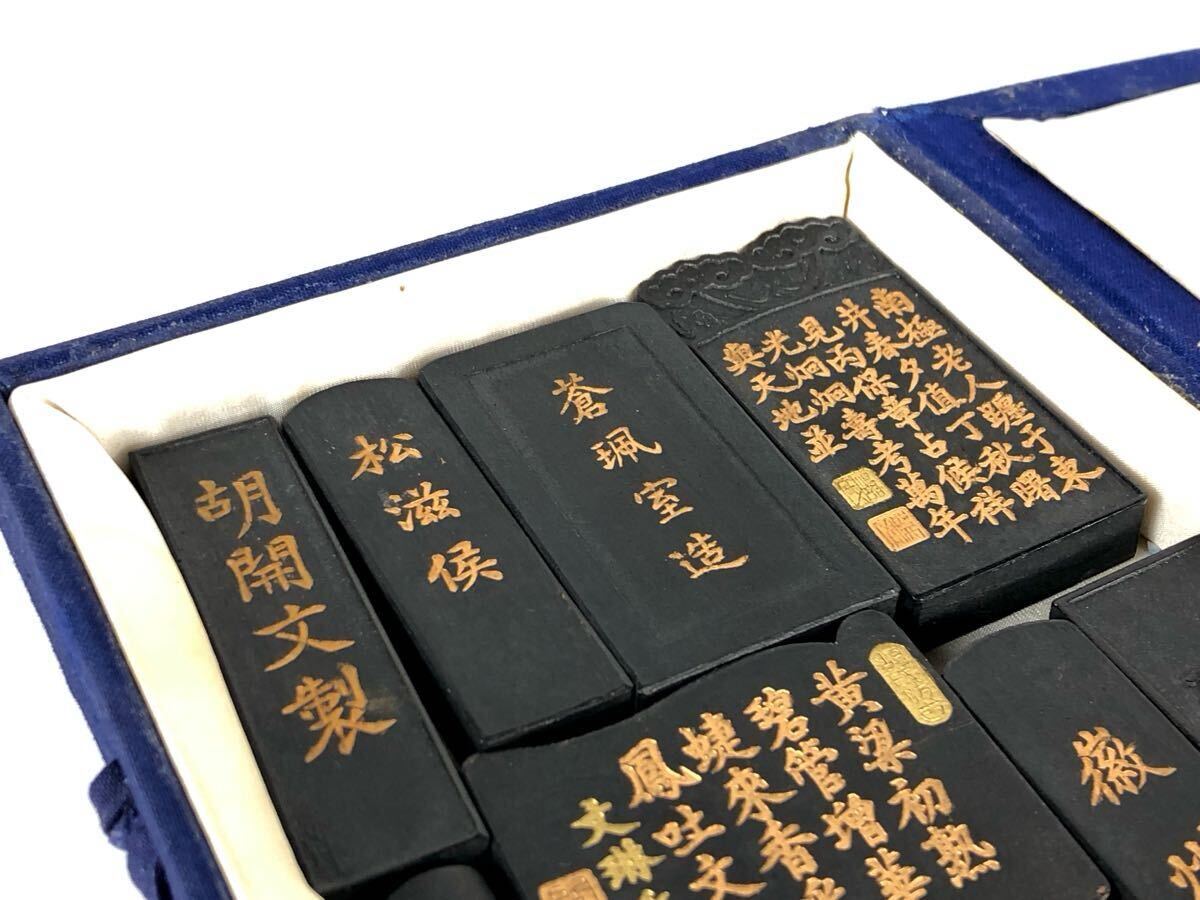 胡開文製
松滋侯
蒼珮室造
南極老人躔于東
井春夕值丁秋曙
見丙保章占候祥
光炯炯壽考萬年
與天地並
黄梁初熟
碧管增華
蜨來香
鳳吐文
文琳
徽